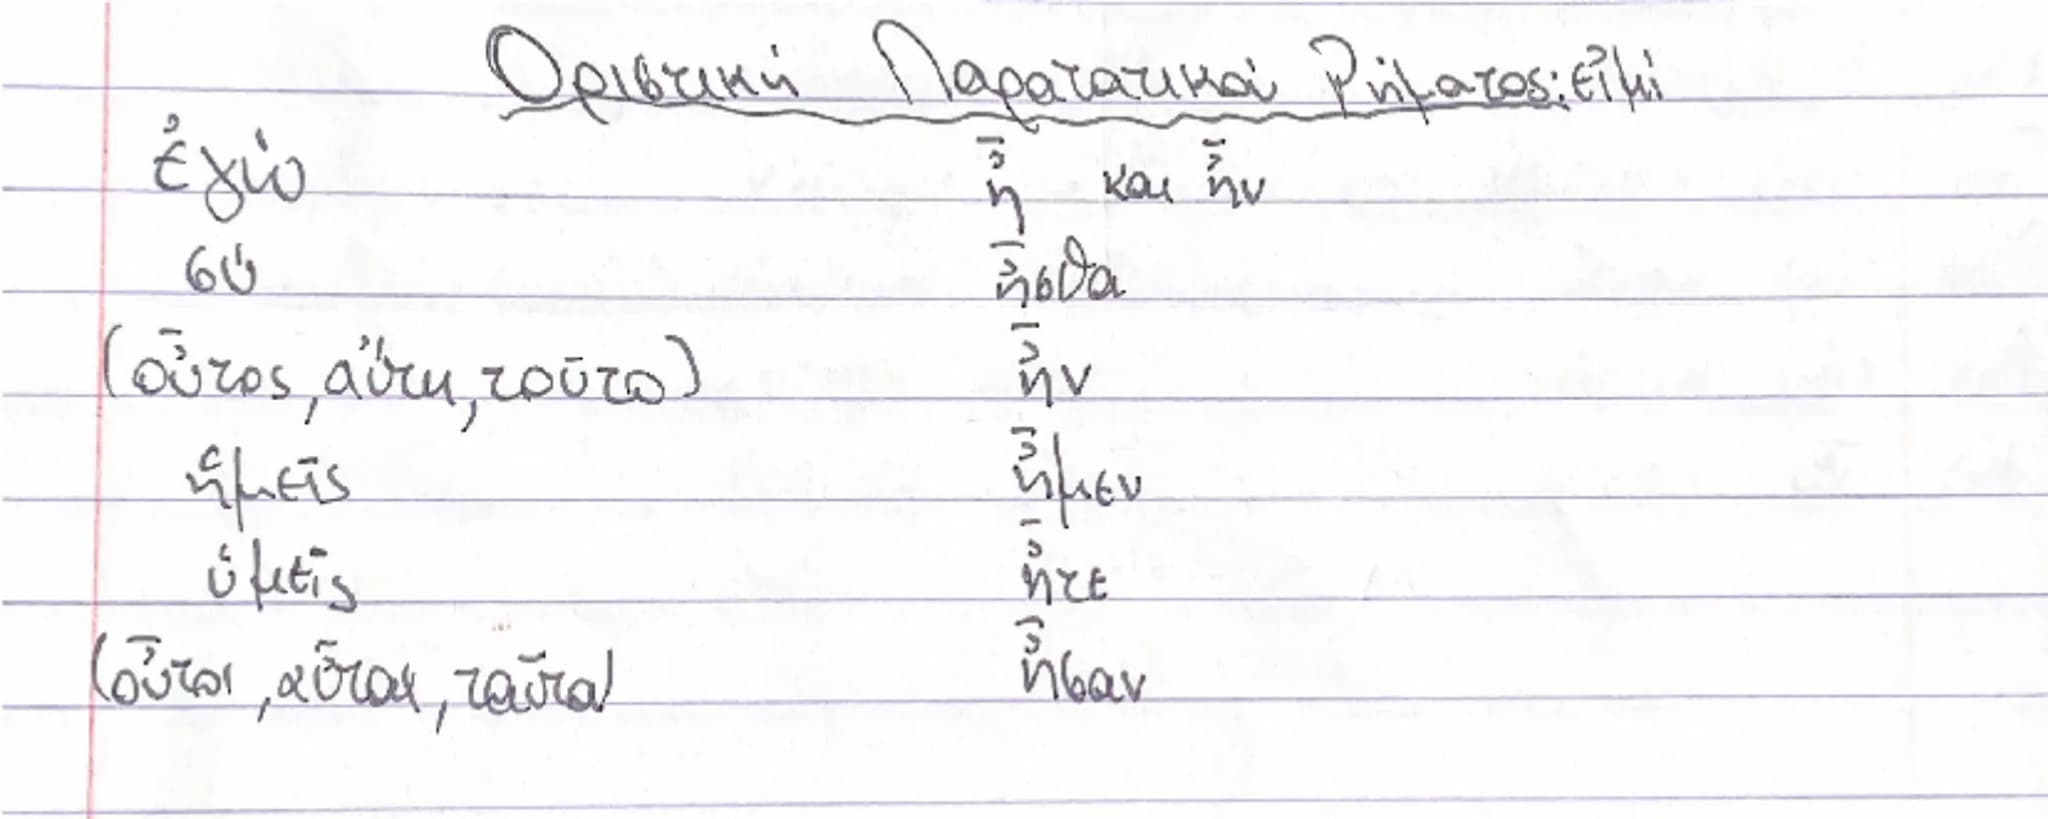 Οριστική Παρατατικού Ρήματος: εἰμί
ἐγώ ἦ και ἦν
σύ ἦσθα
(οὗτος, αὕτη, τοῦτο) ἦν
ἡμεῖς ἦμεν
ὑμεῖς ἦτε
(οὗτοι, αὗται, ταῦτα) ἦσαν